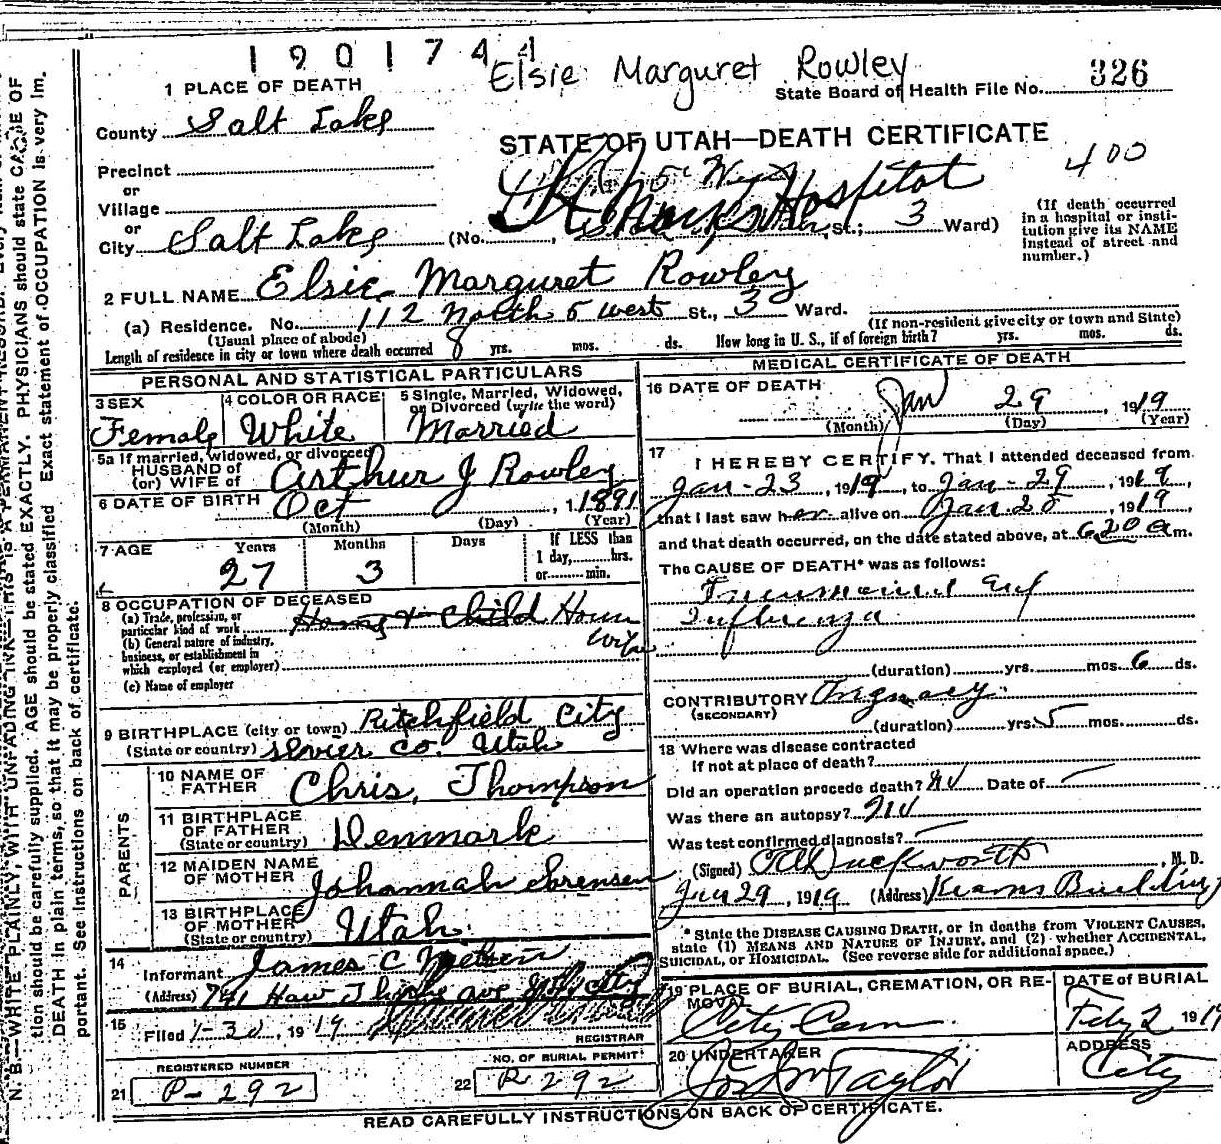 1901744
Elsie Marguret Rowley
State Board of Health File No. 326
1 PLACE OF DEATH
County Salt Lake
STATE OF UTAH—DEATH CERTIFICATE
400
Precinct
or
Village
or
City Salt Lake (No. Hospital St.; 3 Ward)
(If death occurred in a hospital or insti-
tution give its NAME
instead of street and
number.)
2 FULL NAME Elsie Marguret Rowley
(a) Residence. No. 112 North 5 West St., 3 Ward.
(Usual place of abode)
(If non-resident give city or town and State)
Length of residence in city or town where death occurred 8 yrs. mos. ds. How long in U. S., if of foreign birth? yrs. mos. ds.
PERSONAL AND STATISTICAL PARTICULARS
3 SEX
Female
4 COLOR OR RACE
White
5 Single, Married, Widowed,
or Divorced (write the word)
Married
5a If married, widowed, or divorced
HUSBAND of
(or) WIFE of Arthur J Rowley
6 DATE OF BIRTH Oct 1891
(Month) (Day) (Year)
7 AGE Years Months Days If LESS than
1 day, hrs.
or min.
27 3
8 OCCUPATION OF DECEASED
(a) Trade, profession, or
particular kind of work House
wife
(b) General nature of industry,
business, or establishment in
which employed (or employer)
(c) Name of employer
9 BIRTHPLACE (city or town) Ritchfield City
(State or country) Sevier Co. Utah
PARENTS
10 NAME OF
FATHER Chris. Thompson
11 BIRTHPLACE
OF FATHER
(State or country) Denmark
12 MAIDEN NAME
OF MOTHER Johannah Sorensen
13 BIRTHPLACE
OF MOTHER
(State or country) Utah
14
Informant James C Nielsen
(Address) 741 Hawthorne ave City
15
Filed 1-30, 1919
REGISTRAR
REGISTERED NUMBER
21 P-292
NO. OF BURIAL PERMIT
22 R 292
MEDICAL CERTIFICATE OF DEATH
16 DATE OF DEATH
Jan 29, 1919
(Month) (Day) (Year)
17
I HEREBY CERTIFY, That I attended deceased from
Jan-23, 1919, to Jan-29, 1919,
that I last saw her alive on Jan 28, 1919
and that death occurred, on the date stated above, at 6 20 a m.
The CAUSE OF DEATH* was as follows:
Influenza
(duration) yrs. mos. 6 ds.
CONTRIBUTORY
(SECONDARY)
(duration) yrs. 5 mos. ds.
18 Where was disease contracted
if not at place of death?
Did an operation precede death? No Date of
Was there an autopsy? No
Was test confirmed diagnosis?
(Signed) Duckworth, M. D.
Jan 29, 1919 (Address) Kearns Building
* State the DISEASE CAUSING DEATH, or in deaths from VIOLENT CAUSES,
state (1) MEANS AND NATURE OF INJURY, and (2) whether ACCIDENTAL,
SUICIDAL, or HOMICIDAL. (See reverse side for additional space.)
19 PLACE OF BURIAL, CREMATION, OR RE-
MOVAL
City Cem
DATE of BURIAL
Feby 2 1919
20 UNDERTAKER
Taylor
ADDRESS
City
READ CAREFULLY INSTRUCTIONS ON BACK OF CERTIFICATE.
N. B.—WRITE PLAINLY, WITH UNFADING INK—THIS IS A PERMANENT RECORD.
tion should be carefully supplied. AGE should be stated EXACTLY. PHYSICIANS should state CAUSE OF
DEATH in plain terms, so that it may be properly classified Exact statement of OCCUPATION is very im-
portant. See instructions on back of certificate.